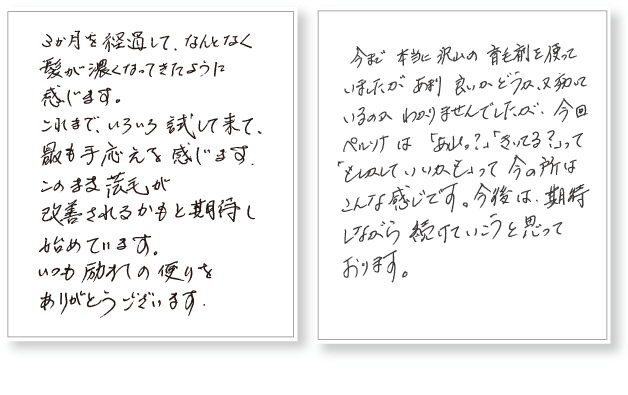 3か月を経過して、なんとなく
髪が濃くなってきたように
感じます。
これまで、いろいろ試して来て、
最も手応えを感じます.
このまま薄毛が
改善されるかもと期待し
始めています。
いつも励ましの便りを
ありがとうございます.
今まで 本当に沢山の 育毛剤を使って
いましたが あまり 良いかどうか、又効いて
いるのか わかりませんでしたが、今回
ペルソナは 「あれっ?」「きいてる?」って
「もしかして いいかも」って 今の所は
こんな感じです。今後は、期待
しながら 続けていこうと思って
おります。